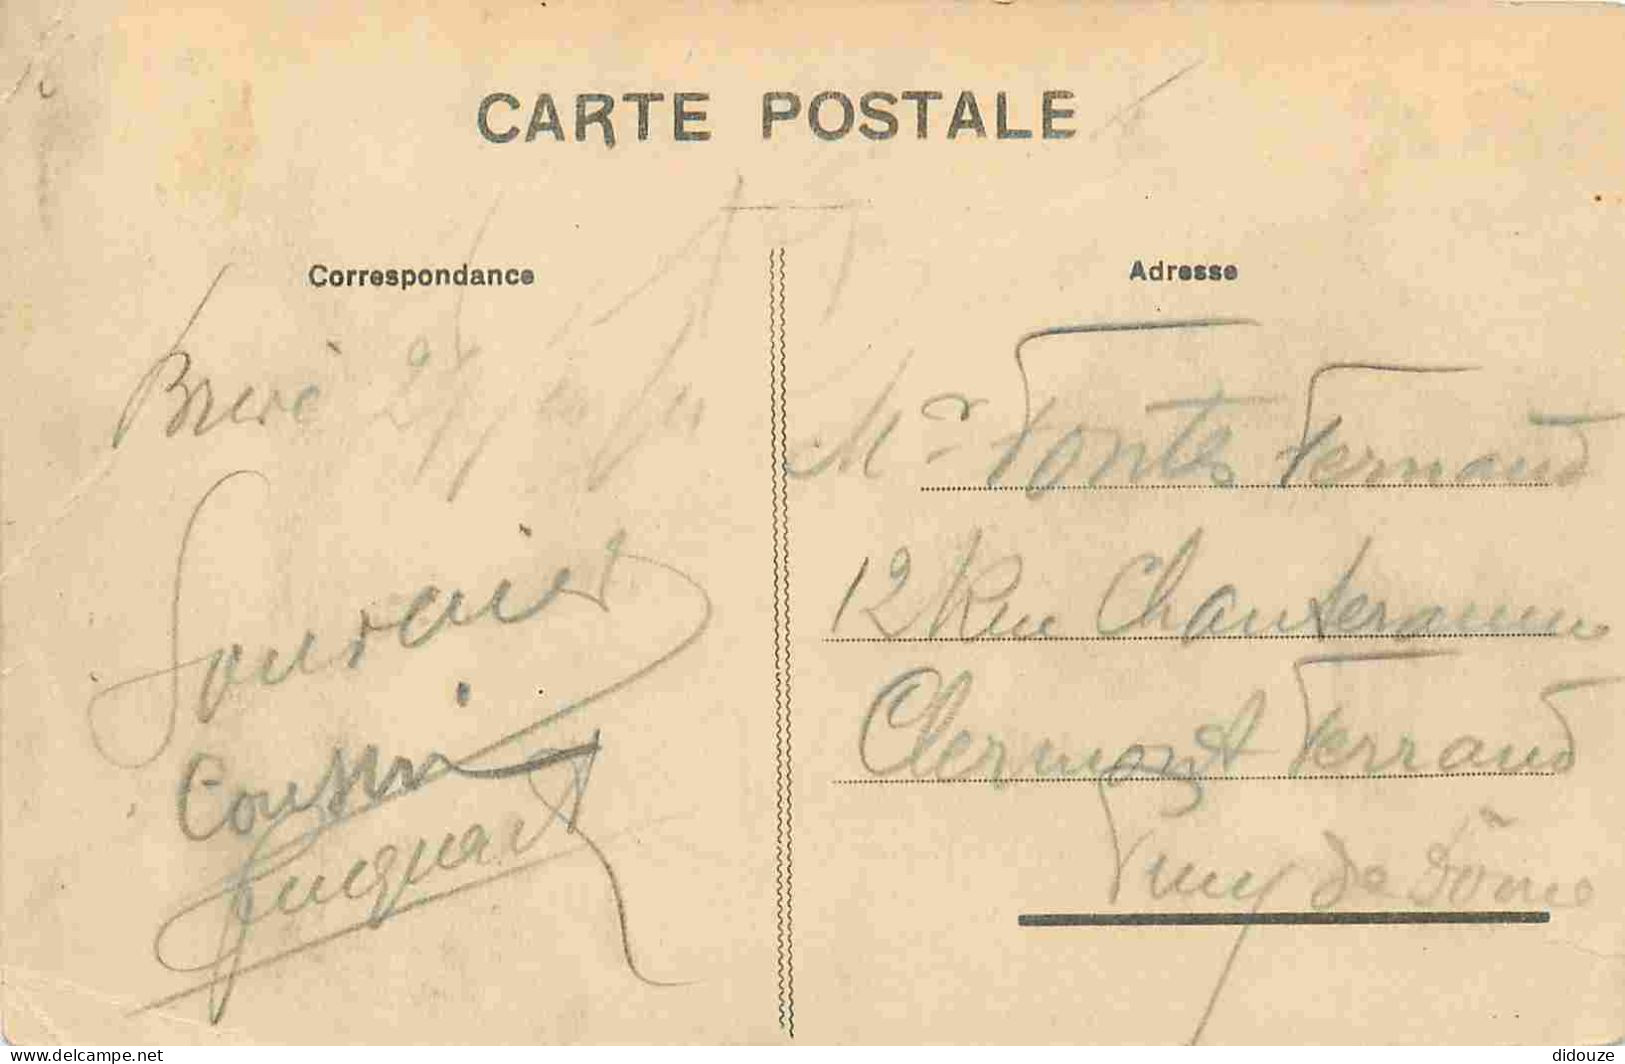 CARTE POSTALE
Correspondance
Adresse
Souvenir
Cousin
Mr Fontes Fernand
12 Rue Chanteranne
Clermont Ferrand
Puy de Dôme
delcampe.net
didouze